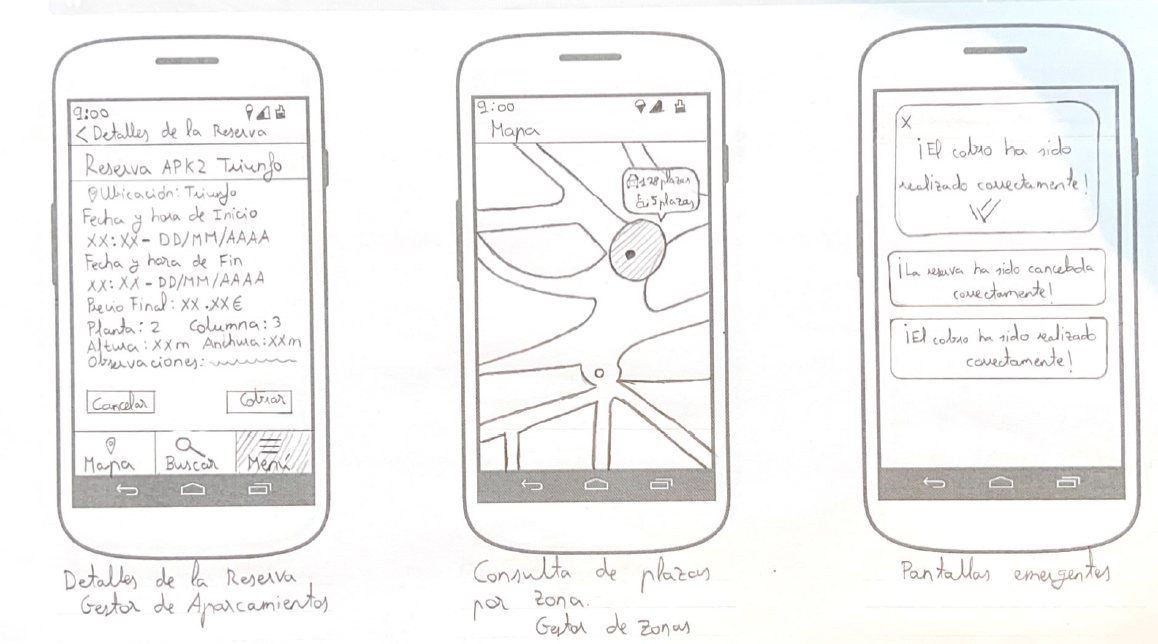 9:00
< Detalles de la Reserva
Reserva APK2 Triunfo
Ubicación: Triunfo
Fecha y hora de Inicio
XX:XX - DD/MM/AAAA
Fecha y hora de Fin
XX:XX - DD/MM/AAAA
Precio Final: XX.XX€
Planta: 2 Columna: 3
Altura: XXm Anchura: XXm
Observaciones:
Cancelar
Cobrar
Mapa
Buscar
Menú
Detalles de la Reserva
Gestor de Aparcamientos
9:00
Mapa
128 plazas
5 plazas
Consulta de plazas
por zona.
Gestor de Zonas
X
¡El cobro ha sido
realizado correctamente!
¡La reserva ha sido cancelada
correctamente!
¡El cobro ha sido realizado
correctamente!
Pantallas emergentes